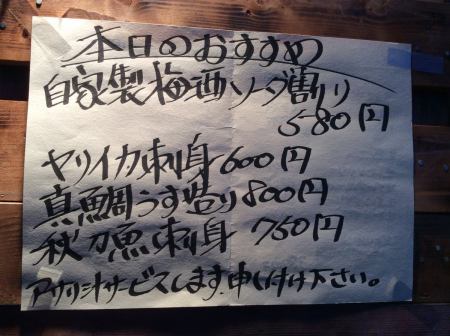 本日のおすすめ
自家製梅酒ソーダ割り
580円
ヤリイカ刺身600円
真鯛うす造り800円
秋刀魚刺身 750円
アサリ汁サービスします。申し付け下さい。